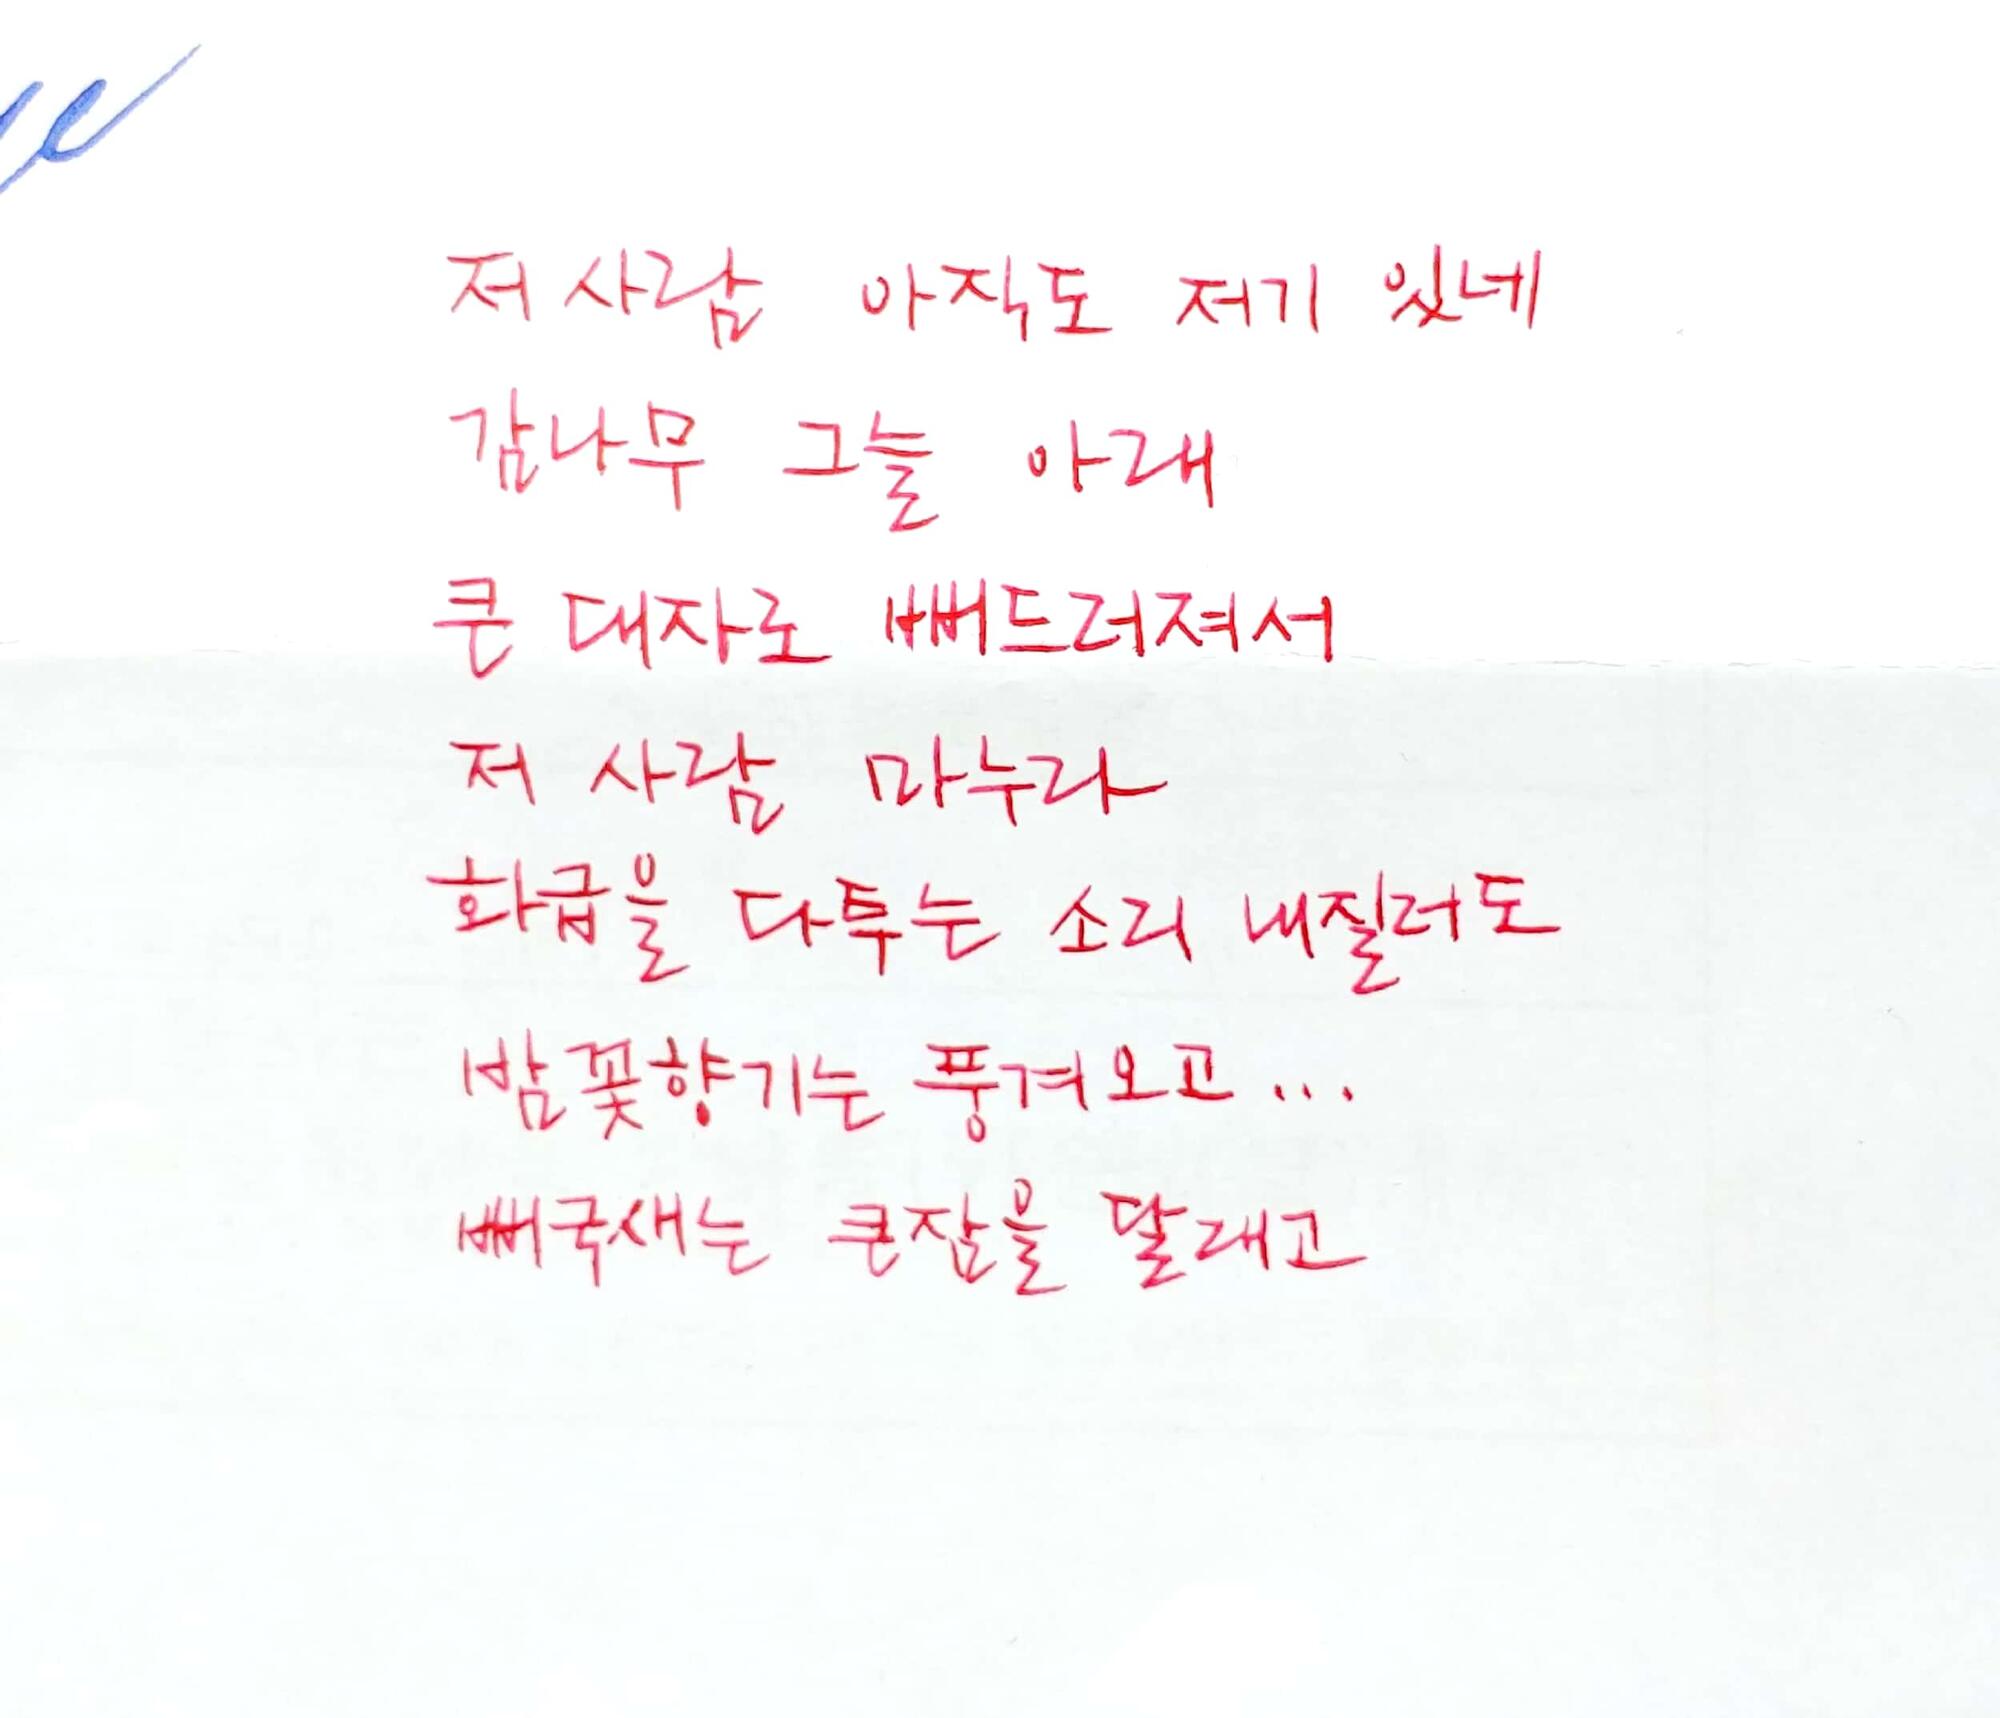 저 사람 아직도 저기 있네
감나무 그늘 아래
큰 대자로 뻐드러져서
저 사람 마누라
화급을 다투는 소리 내질러도
밤꽃향기는 풍겨오고...
뻐국새는 큰잠을 달래고